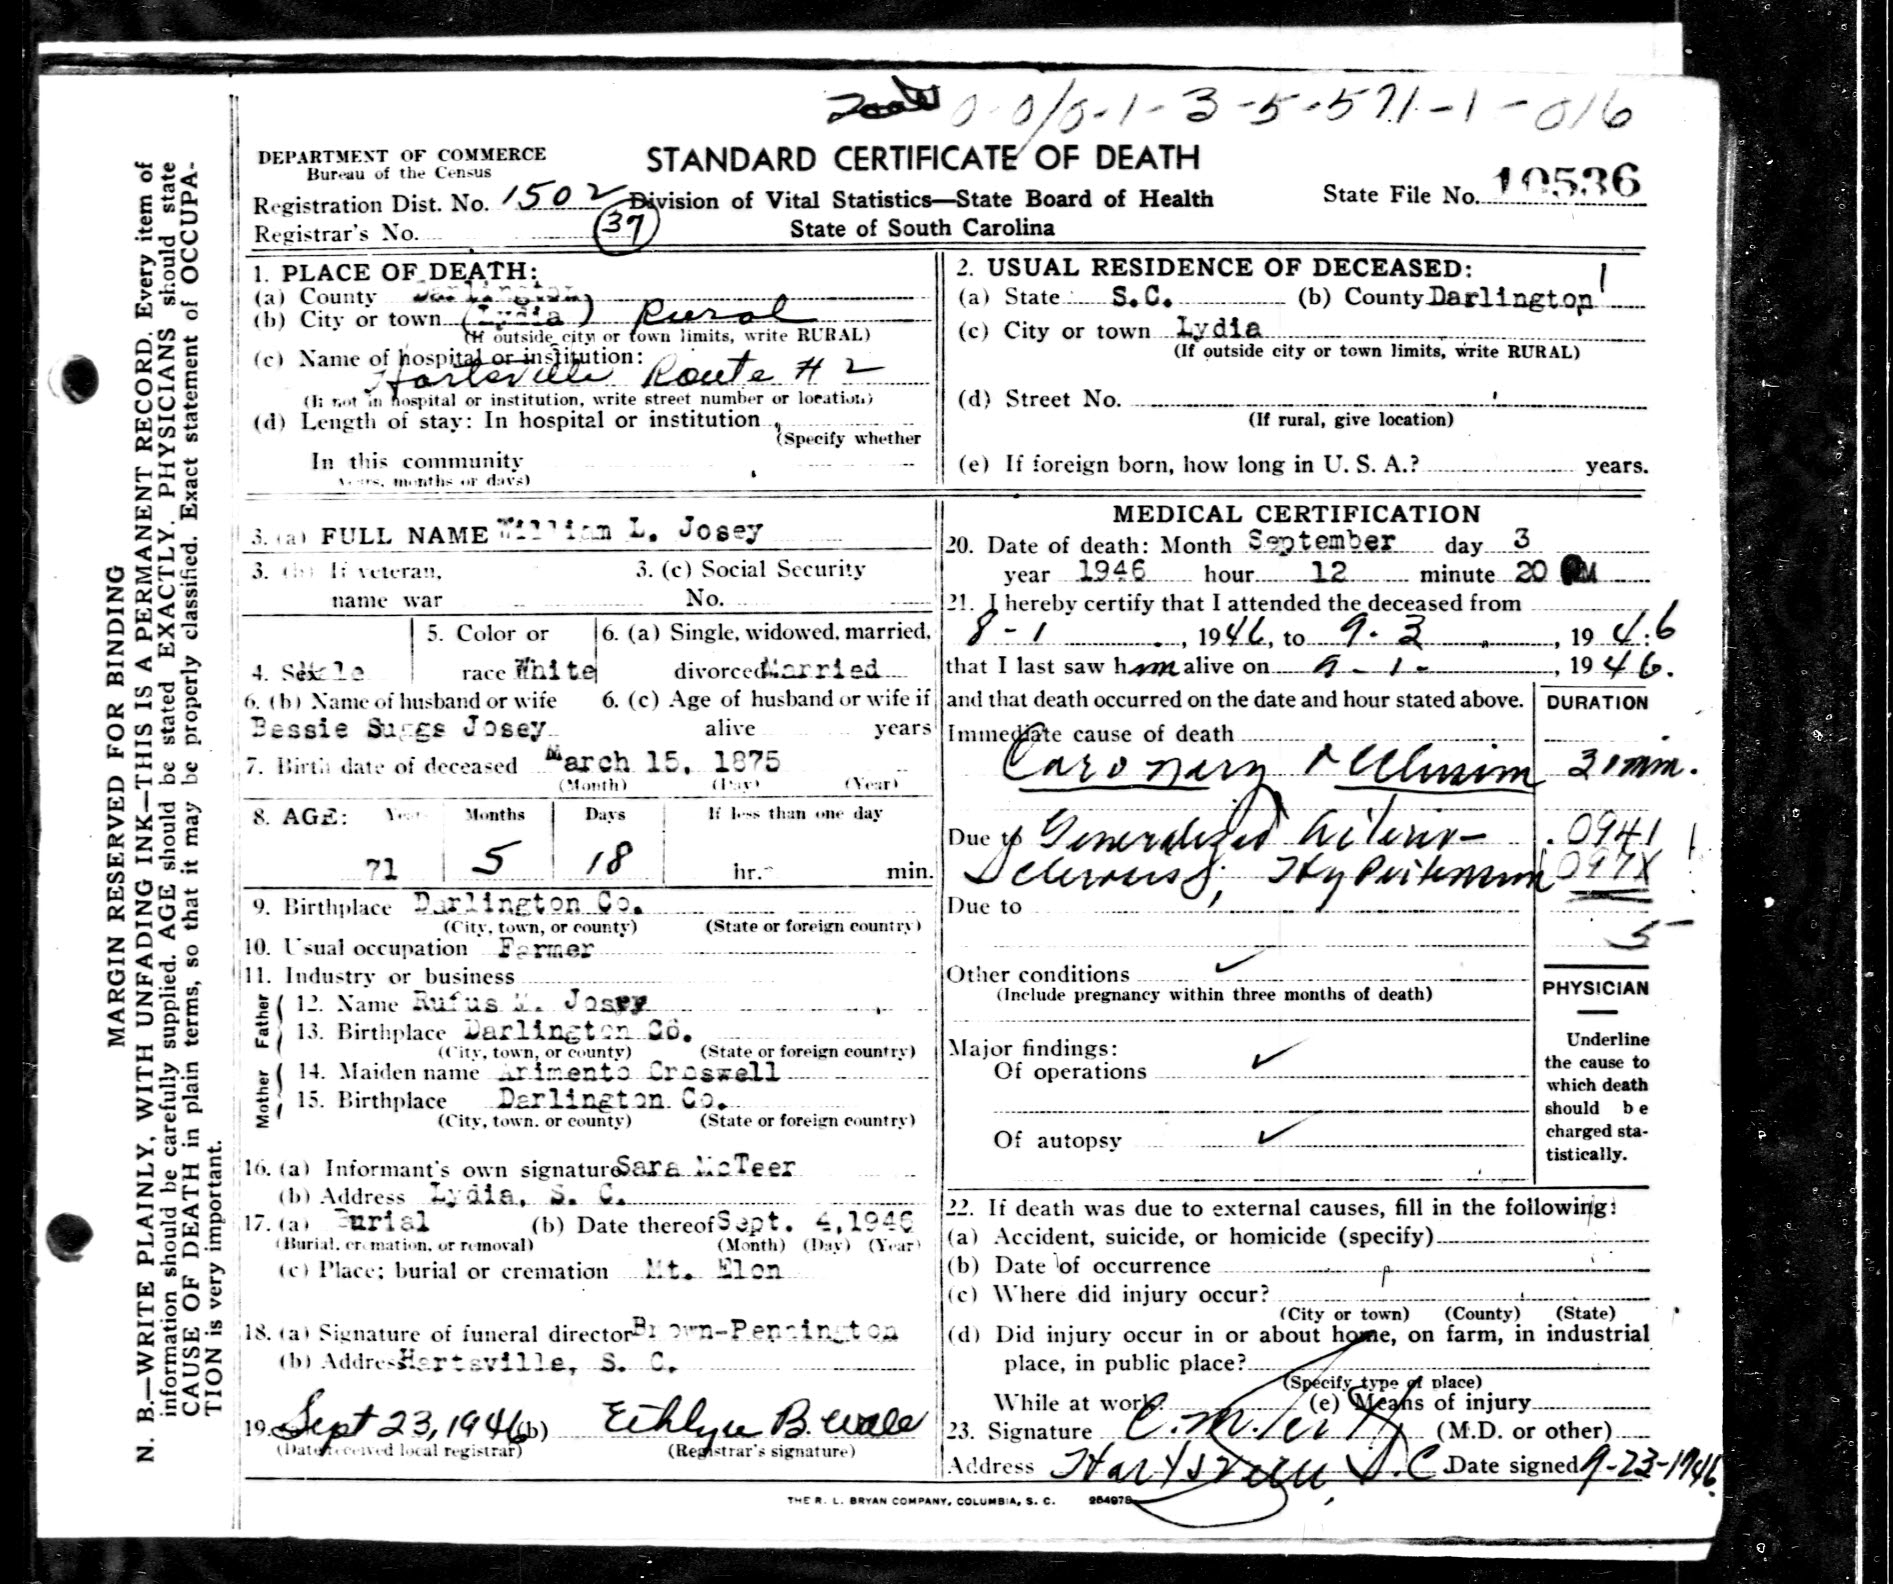 0-0/0-1-3-5-571-1-016
DEPARTMENT OF COMMERCE
Bureau of the Census
STANDARD CERTIFICATE OF DEATH
Registration Dist. No. 1502
Division of Vital Statistics—State Board of Health
State File No. 10536
Registrar's No. 37
State of South Carolina
N. B.—WRITE PLAINLY, WITH UNFADING INK—THIS IS A PERMANENT RECORD. Every item of
information should be carefully supplied. AGE should be stated EXACTLY. PHYSICIANS should state
CAUSE OF DEATH in plain terms, so that it may be properly classified. Exact statement of OCCUPA-
TION is very important.
MARGIN RESERVED FOR BINDING
1. PLACE OF DEATH:
(a) County Darlington
(b) City or town (Lydia) Rural
(If outside city or town limits, write RURAL)
(c) Name of hospital or institution:
Hartsville Route # 2
(If not in hospital or institution, write street number or location)
(d) Length of stay: In hospital or institution
(Specify whether
In this community
years, months or days)
2. USUAL RESIDENCE OF DECEASED:
(a) State S.C. (b) County Darlington
(c) City or town Lydia
(If outside city or town limits, write RURAL)
(d) Street No.
(If rural, give location)
(e) If foreign born, how long in U. S. A.? years.
3. (a) FULL NAME William L. Josey
3. (b) If veteran,
name war
3. (c) Social Security
No.
4. Sex Male
5. Color or
race White
6. (a) Single, widowed, married,
divorced Married
6. (b) Name of husband or wife
Bessie Suggs Josey
6. (c) Age of husband or wife if
alive years
7. Birth date of deceased March 15, 1875
(Month) (Day) (Year)
8. AGE: Years Months Days If less than one day
71 5 18 hr. min.
9. Birthplace Darlington Co.
(City, town, or county) (State or foreign country)
10. Usual occupation Farmer
11. Industry or business
Father
12. Name Rufus M. Josey
13. Birthplace Darlington Co.
(City, town, or county) (State or foreign country)
Mother
14. Maiden name Arimento Croswell
15. Birthplace Darlington Co.
(City, town. or county) (State or foreign country)
16. (a) Informant's own signature Sara McTeer
(b) Address Lydia, S. C.
17. (a) Burial (b) Date thereof Sept. 4, 1946
(Burial, cremation, or removal) (Month) (Day) (Year)
(c) Place; burial or cremation Mt. Elon
18. (a) Signature of funeral director Brown-Pennington
(b) Address Hartsville, S. C.
19. Sept 23, 1946 (b)
(Date received local registrar) (Registrar's signature)
MEDICAL CERTIFICATION
20. Date of death: Month September day 3
year 1946 hour 12 minute 20 PM
21. I hereby certify that I attended the deceased from
8-1, 1946, to 9-3, 1946
that I last saw him alive on 9-1-, 1946.
and that death occurred on the date and hour stated above.
DURATION
Immediate cause of death
Coronary occlusion 30 min.
Due to Generalized Arterio- 0941
Sclerosis, Hypertension 097X
Due to
5
Other conditions
(Include pregnancy within three months of death)
Major findings:
Of operations
Of autopsy
PHYSICIAN
Underline
the cause to
which death
should be
charged sta-
tistically.
22. If death was due to external causes, fill in the following:
(a) Accident, suicide, or homicide (specify)
(b) Date of occurrence
(c) Where did injury occur?
(City or town) (County) (State)
(d) Did injury occur in or about home, on farm, in industrial
place, in public place?
(Specify type of place)
While at work? (e) Means of injury
23. Signature (M.D. or other)
Address Hartsville, S.C. Date signed 9-23-1946
THE R. L. BRYAN COMPANY, COLUMBIA, S. C. 254978